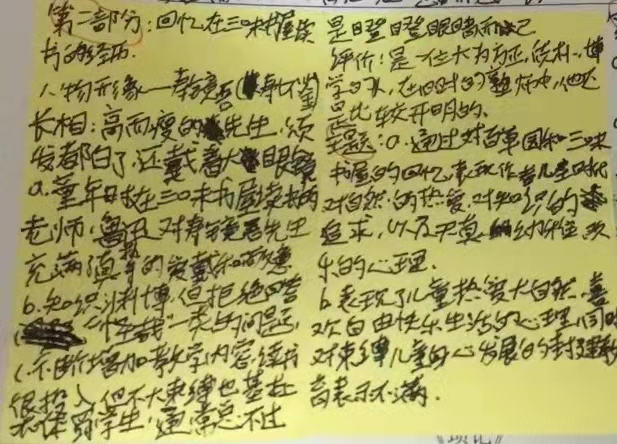 第二部分:回忆在三味书屋读
书的经历.
人物形象—寿镜吾(寿怀鉴
长相:高而瘦的先生,须
发都白了,还戴着大眼镜
a.童年时在三味书屋读书的
老师,鲁迅对寿镜吾先生
充满了真挚的爱戴和感慨
b.知识渊博,但拒绝回答
"怪哉"一类的问题,
c.不断增加教学内容,读书
很投入,但不大束缚也基本
体罚学生,通常总不过
是瞪瞪眼睛而已
评价:是一位大为方正,质朴,博
学的人,在旧时的塾师中,他还
是比较开明的.
主题:a.通过对百草园和三味
书屋的回忆,表现作者儿童时代
对自然的热爱,对知识的
追求,以及天真 幼稚 欢
乐的心理.
b.表现了儿童热爱大自然,喜
欢自由快乐生活的心理,同时
对束缚儿童身心发展的封建教
育表示不满.